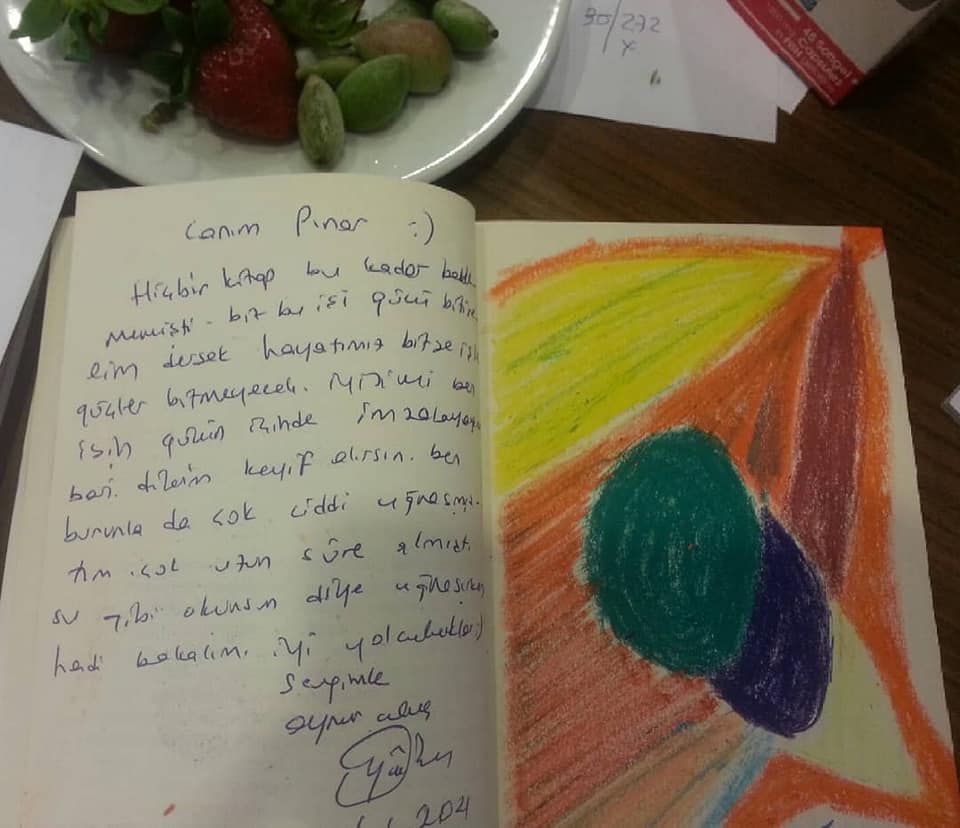 30/272
x
48 Softgel
Capsules
Canım Pınar :)
Hiçbir kitap bu kadar bekle
memişti - biz bu işi gücü bitire
lim dersek hayatımız bitse iş
güçler bitmeyecek. İyisimi ben
işin gücün içinde imzalayayı
bari. dilerim keyif alırsın. ben
bununla da çok ciddi uğraşmış
tım çok uzun süre almıştı
su gibi okunsun diye uğraşırken
hadi bakalım. iyi yolculuklar :)
Sevgimle